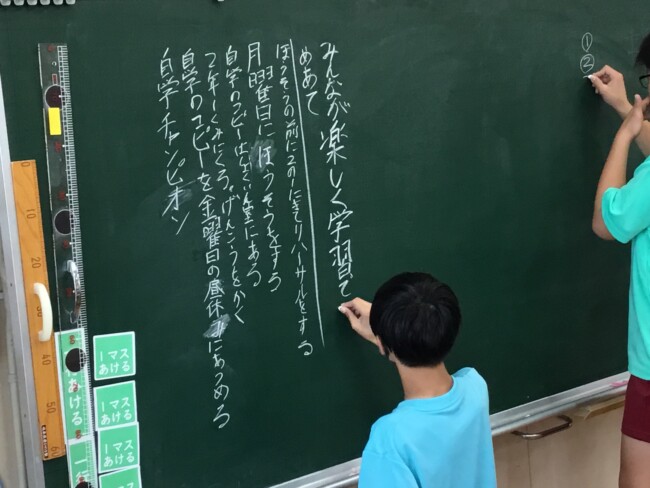 ①
③
みんなが楽しく学習て
めあて
ほうそうの前に2の1にきてリハーサルをする
月曜日にほうそうをする
自学のコピーはしょくいん室にある
2年1くみにくる。げんこうをかく
自学のコピーを金曜日の昼休みにあつめる
自学チャンピオン
1マス
あける
1マス
あける
1マス
あける
1マス
あける
一行
10
20
30
40
50
60